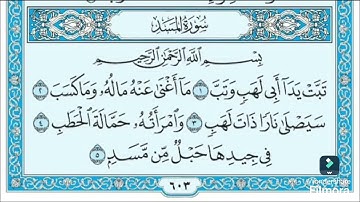 سُورَةُ المَسَدِ
بِسْمِ اللَّهِ الرَّحْمَٰنِ الرَّحِيمِ
تَبَّتْ يَدَآ أَبِي لَهَبٍ وَتَبَّ ١ مَآ أَغْنَىٰ عَنْهُ مَالُهُۥ وَمَا كَسَبَ ٢
سَيَصْلَىٰ نَارًا ذَاتَ لَهَبٍ ٣ وَٱمْرَأَتُهُۥ حَمَّالَةَ ٱلْحَطَبِ ٤
فِي جِيدِهَا حَبْلٌ مِّن مَّسَدٍۭ ٥
٦٠٣
Wondershare
Filmora